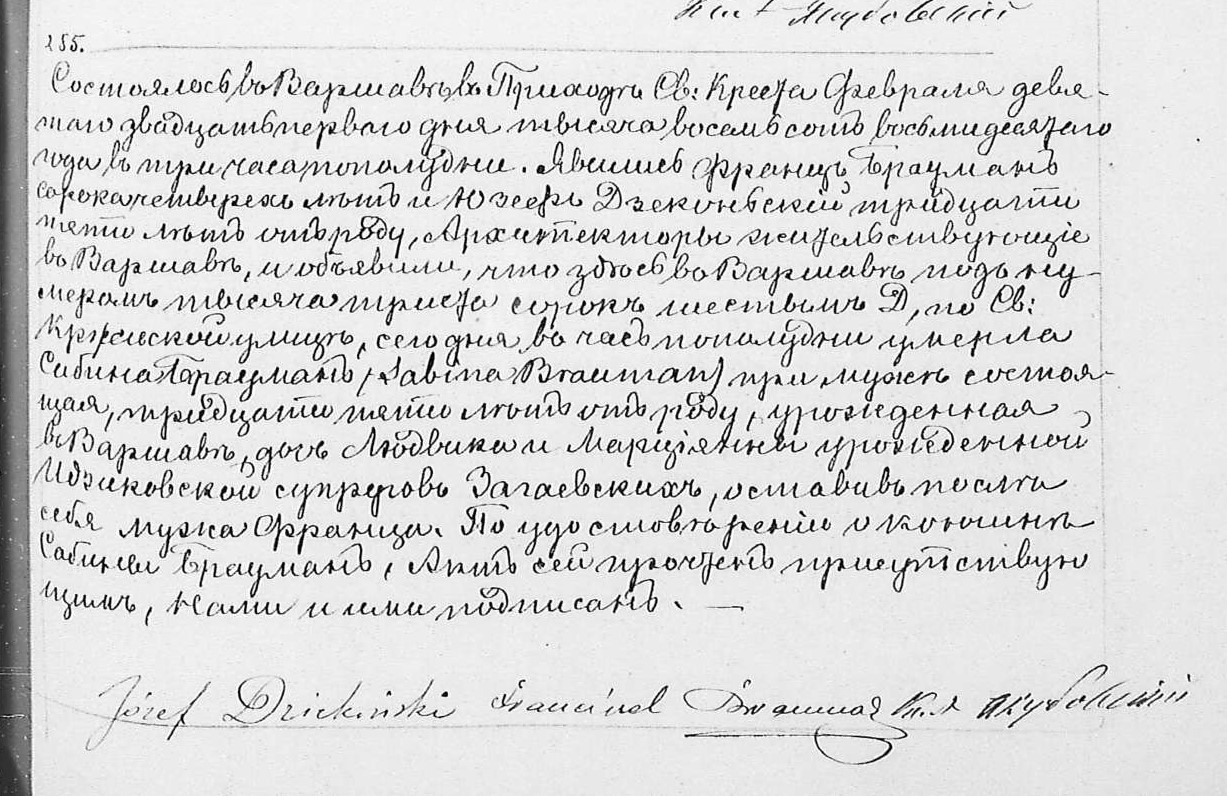 Якубовскій
255.
Состоялось въ Варшавѣ въ Приходѣ Св: Креста Февраля девя-
таго двадцать перваго дня тысяча восемьсотъ восьмидесятаго
года въ три часа пополудни. Явились Францъ Брауманъ
сорока четырехъ лѣтъ и Юзефъ Дзеконьскій тридцати
пяти лѣтъ отъ роду, Архитекторы жительствующіе
въ Варшавѣ, и объявили, что здѣсь въ Варшавѣ подъ ну-
меромъ тысяча триста сорокъ шестымъ Д, по Св:
Кржиской улицѣ, сегодня въ часъ пополудни умерла
Сабина Брауманъ /Sabina Brauman/ при мужѣ состоя-
щая, тридцати пяти лѣтъ отъ роду, урожденная
въ Варшавѣ, дочь Людвика и Марціянны урожденной
Идзиковской супруговъ Загаевскихъ, оставивъ послѣ
себя мужа Франца. По удостовѣреніи о кончинѣ
Сабины Брауманъ, Актъ сей прочтенъ присутствую
щимъ, Нами и ими подписанъ. —
Józef Dziekoński Franciszek Brauman Кс. Якубовскій